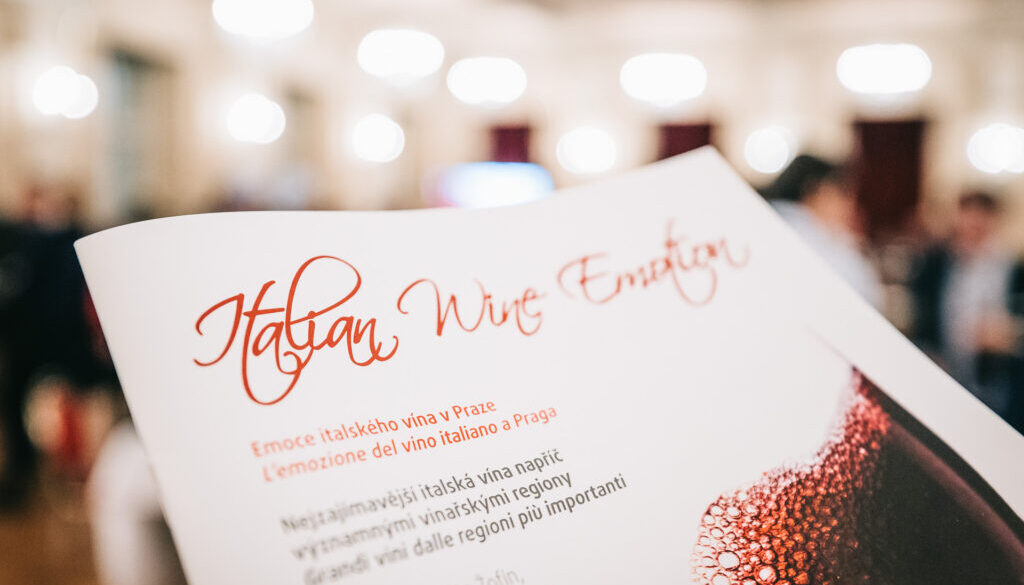 Italian Wine Emotion
Emoce italského vína v Praze
L'emozione del vino italiano a Praga
Nejzajímavější italská vína napříč
významnými vinařskými regiony
Grandi vini dalle regioni più importanti
Žofín,